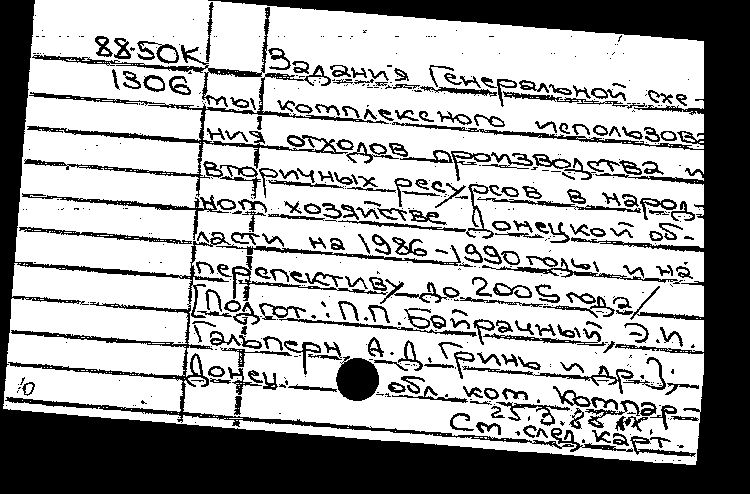 88-50К
1306
Задания Генеральной схе-
мы комплексного использова
ния отходов производства и
вторичных ресурсов в народ-
ном хозяйстве Донецкой об-
ласти на 1986-1990 годы и на
перспективу до 2005 года /
[Подгот.: П.П. Байрачный, Э.И.
Гальперн, А.Д. Гринь и др.];
Донец. обл. ком. Компар-
25.3.88
См. след. карт.
10